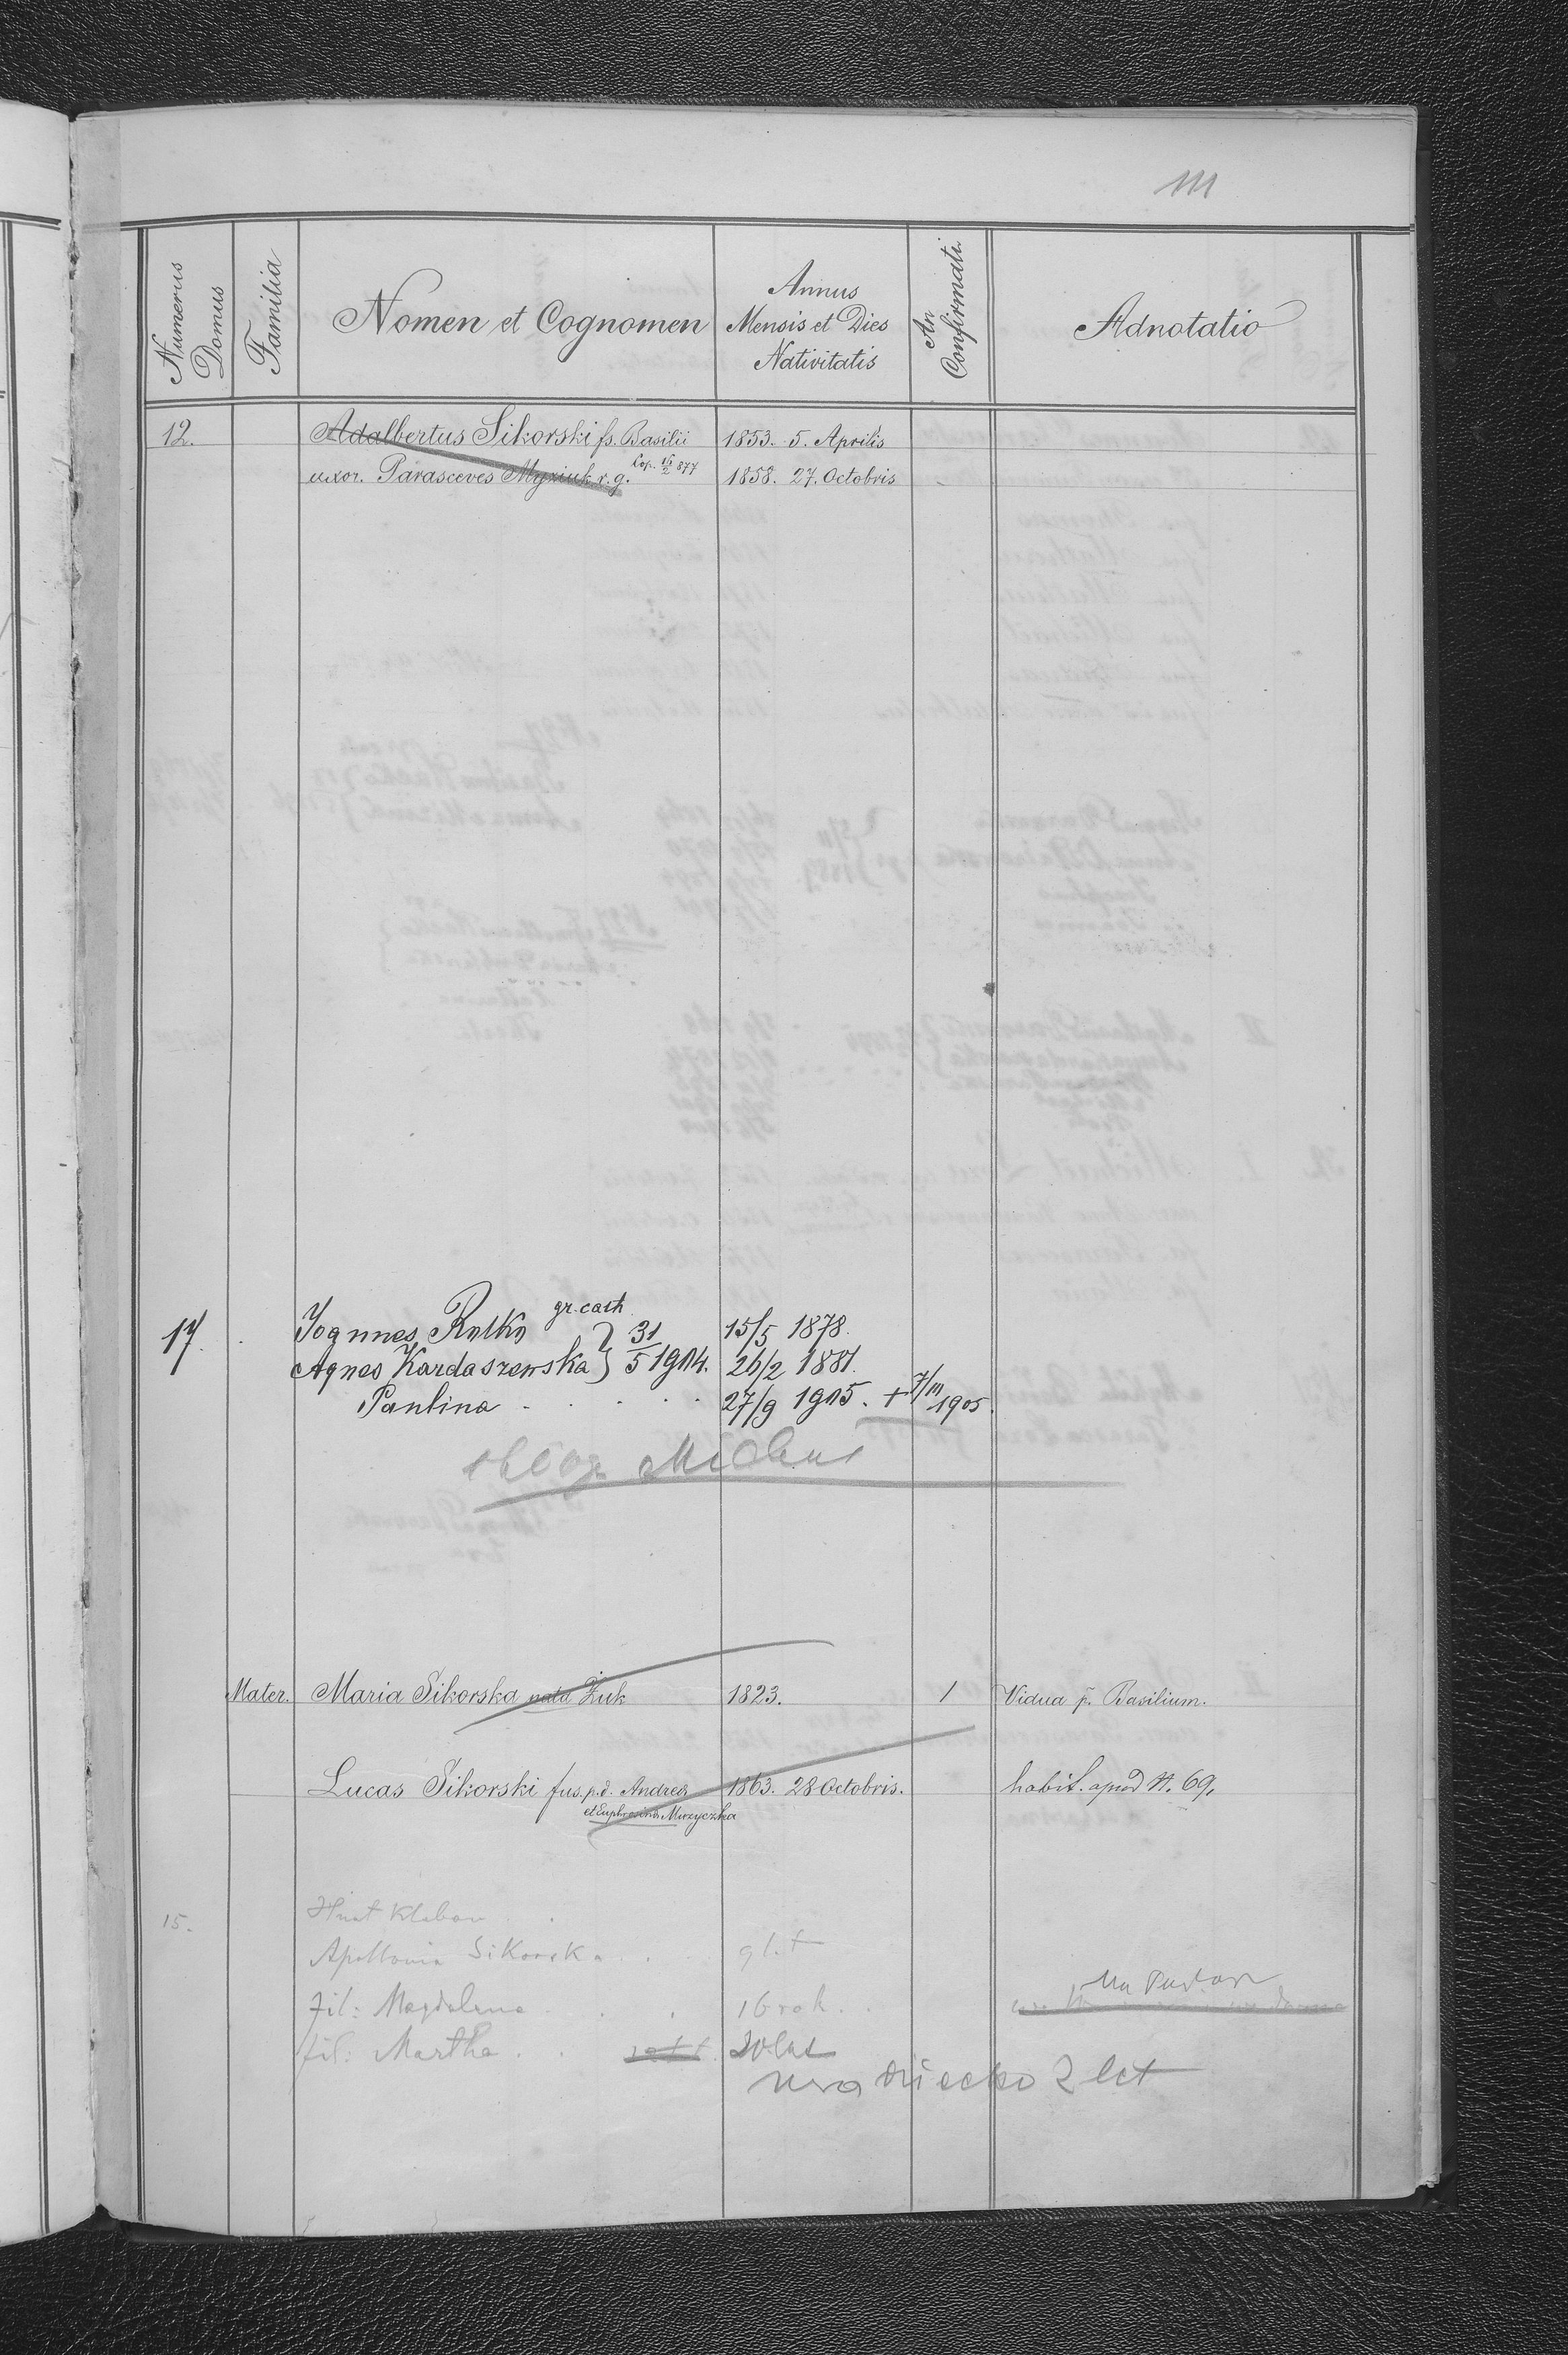 111
Numerus Domus
Familia
Nomen et Cognomen
Annus Mensis et Dies Nativitatis
An Confirmati
Adnotatio
12. Adalbertus Sikorski fs. Basilii 1853. 5. Aprilis
uxor. Parasceves Myziuk r. g. Cop. 16/2 877 1858. 27. Octobris
17. Joannes Rolko gr. cath 15/5 1878.
Agnes Kardaszewska } 31/5 1904. 26/2 1881.
Paulina 27/9 1905. + 7/10 1905.
Mater. Maria Sikorska nata Żuk 1823. 1 Vidua p. Basilium.
Lucas Sikorski fus. p.d. Andreæ 1863. 28 Octobris. habit. apud N. 69.
et Euphrosina Mirzyczka
15. Hnat
Apollonia Sikorska . . 9 l.t
fil: Magdalena . . . 16 rok . .
Na
fil: Martha . . 20 lat
dziecko 2 let